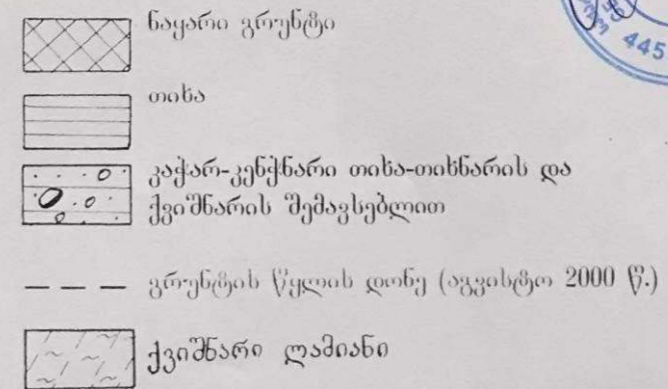 ნაყარი გრუნტი
თიხა
კაჭარ-კენჭნარი თიხა-თიხნარის და
ქვიშნარის შემავსებლით
გრუნტის წყლის დონე (აგვისტო 2000 წ.)
ქვიშნარი ლამიანი
445